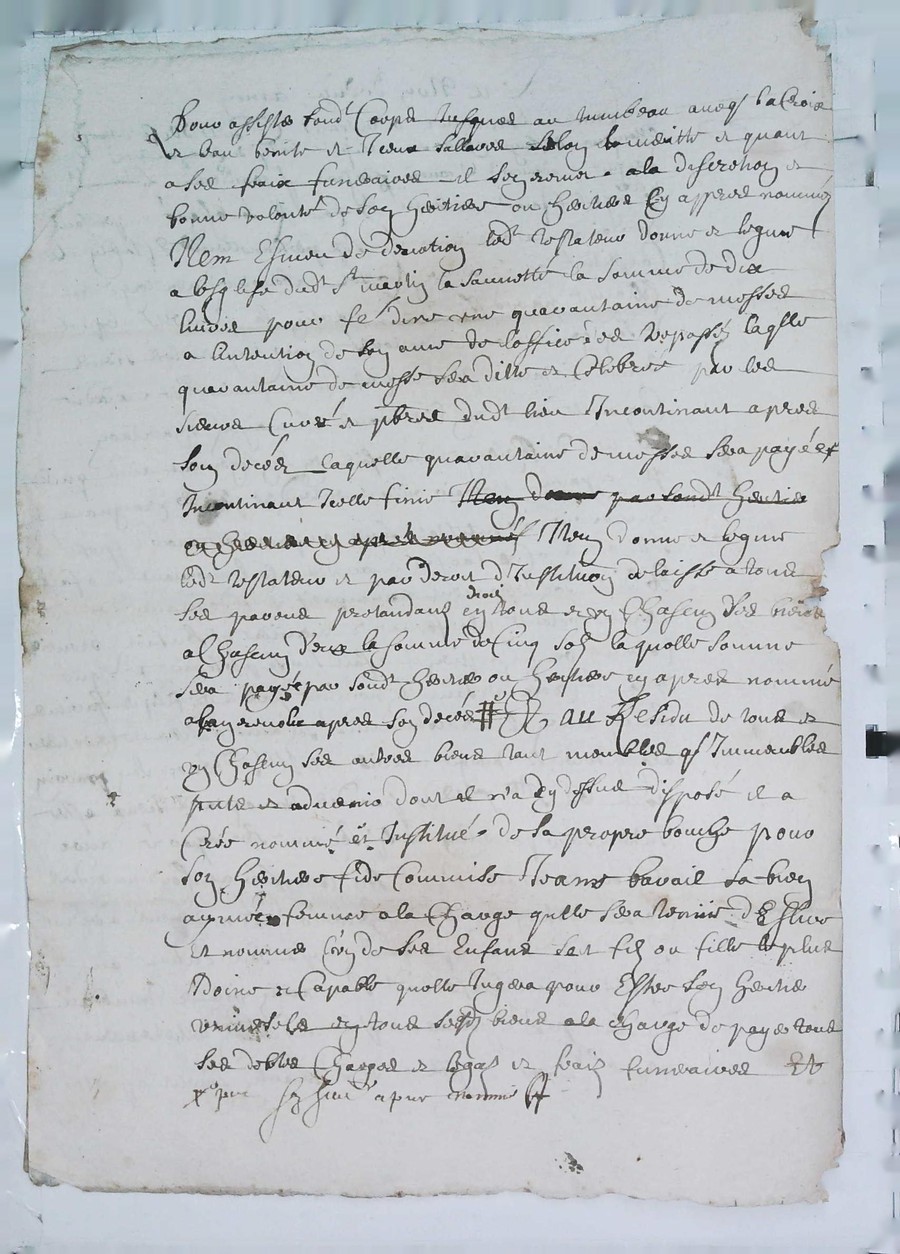 Pour assister sond^t Corps Jusques au tumbeau aveq^s la Croix
et leau benite et Iceux sallaires selon le meritte et quant
a ses fraix funeraires il sen remet a la discretion et
bonne volonté de son heritiere ou heritiers Cy apprès nommés
Item Esmeu de devotion led^t testateur donne et legue
a lesglise dud^t S^t martin la sauvetté la somme de dix
livres pour f^e dire une quarantaine de messes
a lintention de son ame de loffice des trepassés laqlle
quarantaine de messe sera ditte et Celebree par les
sieurs Curé et pbres dud^t lieu Incontinant apres
son deces laquelle quarantaine de messes sera payée
Incontinant Icelle finie Item donne par sond^t heritier
ou heritiere cy après nommés Item donne et legue
led^t testateur et par droit d'Institution delaisse a tous
ses parens pretandans droit en tous et un Chascun ses biens
a Chascun d'eux la somme de Cinq sols laquelle somme
sera payée par sond^t heritier ou heritiere cy apres nommé
apres son deces # Et au Residu de tous et
un Chascun ses autres biens tant meubles q^s Immeubles
pnts et advenir dont il n'a cy dessus disposé il a
Créé nommé et Institué de sa propre bouche pour
son heritiere fide Commise Jeane bavail sa bien
aymée femme a la Charge qu'elle sera tenue d'Eslire
et nommer l'un de ses Enfans soit fils ou fille le plus
Idoine et Capable quelle Jugera pour Estre son heritier
universele en tous sesd^s biens a la charge de payer tous
ses debtes Charges et legas et frais funeraires Et
nommé #